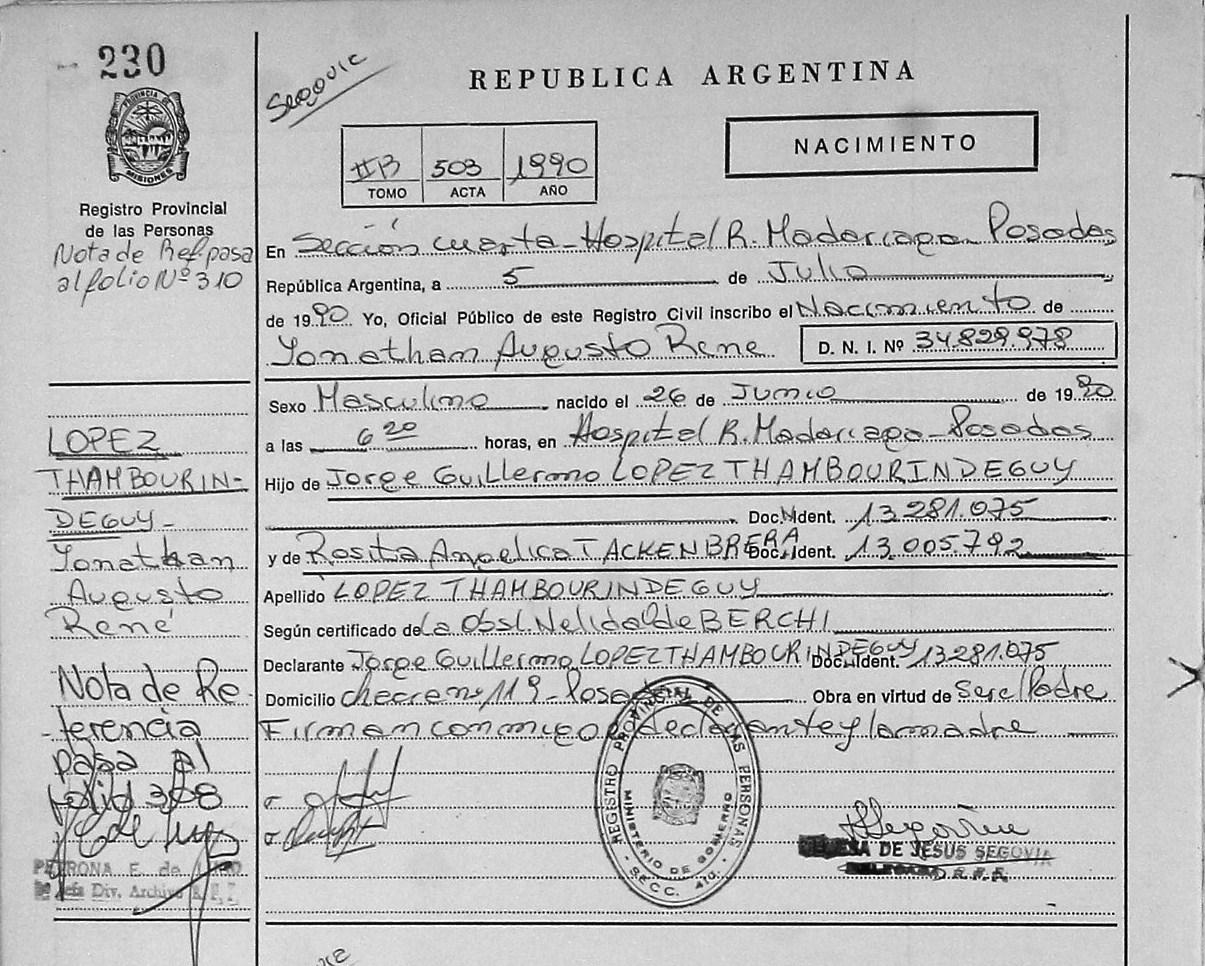 230
Segovic
REPUBLICA ARGENTINA
PROVINCIA DE MISIONES
IIB 503 1990
TOMO ACTA AÑO
NACIMIENTO
Registro Provincial
de las Personas
Nota de Ref. pasa
al folio Nº 310
En Sección cuarta - Hospital R. Madariaga - Posadas
República Argentina, a 5 de Julio
de 1990 Yo, Oficial Público de este Registro Civil inscribo el Nacimiento de
Yonathan Augusto Rene D. N. I. Nº 34.829.978
Sexo Masculino nacido el 26 de Junio de 1990
a las 6 20 horas, en Hospital R. Madariaga - Posadas
Hijo de Jorge Guillermo LOPEZ THAMBOURINDEGUY
Doc. Ident. 13.281.075
y de Rosita Angelica TACKENBRERA Doc. Ident. 13.005.792
Apellido LOPEZ THAMBOURINDEGUY
Según certificado de La Obst. Nelida de BERCHI
Declarante Jorge Guillermo LOPEZ THAMBOURINDEGUY Doc. Ident. 13.281.075
Domicilio checra nº 119 - Posadas Obra en virtud de Ser el Padre
Firman conmigo el declarante y la madre
LOPEZ
THAMBOURIN-
DEGUY -
Yonathan
Augusto
René
Nota de Re-
ferencia
pasa al
folio 308
PETRONA E. de
Jefa Div. Archivo R. P. P.
REGISTRO PROVINCIAL DE LAS PERSONAS
MINISTERIO DE GOBIERNO
SECC. 4ta.
DE JESUS SEGOVIA
DELEGADA R. P. P.